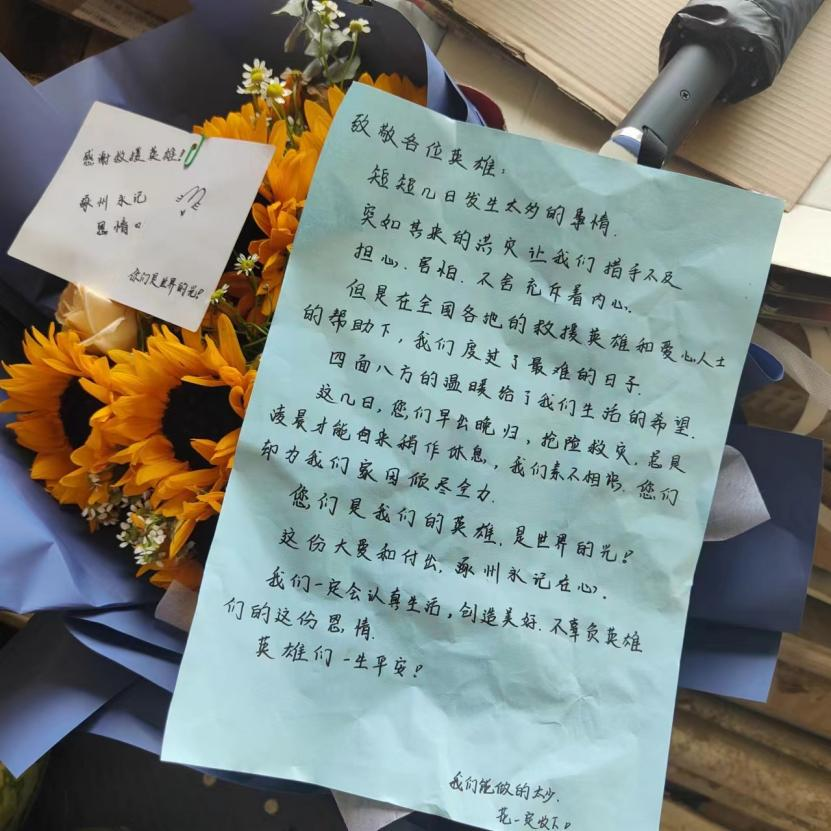 感谢救援英雄!
涿州永记
恩情
你们是世界的光!
致敬各位英雄:
短短几日发生太多的事情.
突如其来的洪灾让我们措手不及
担心.害怕.不舍充斥着内心.
但是在全国各地的救援英雄和爱心人士
的帮助下,我们度过了最难的日子.
四面八方的温暖给了我们生活的希望.
这几日,您们早出晚归,抢险救灾.总是
凌晨才能回来稍作休息,我们素不相识.您们
却为我们家园倾尽全力.
您们是我们的英雄.是世界的光!
这份大爱和付出,涿州永记在心.
我们一定会认真生活,创造美好.不辜负英雄
们的这份恩情.
英雄们一生平安!
我们能做的太少.
花一定收下!